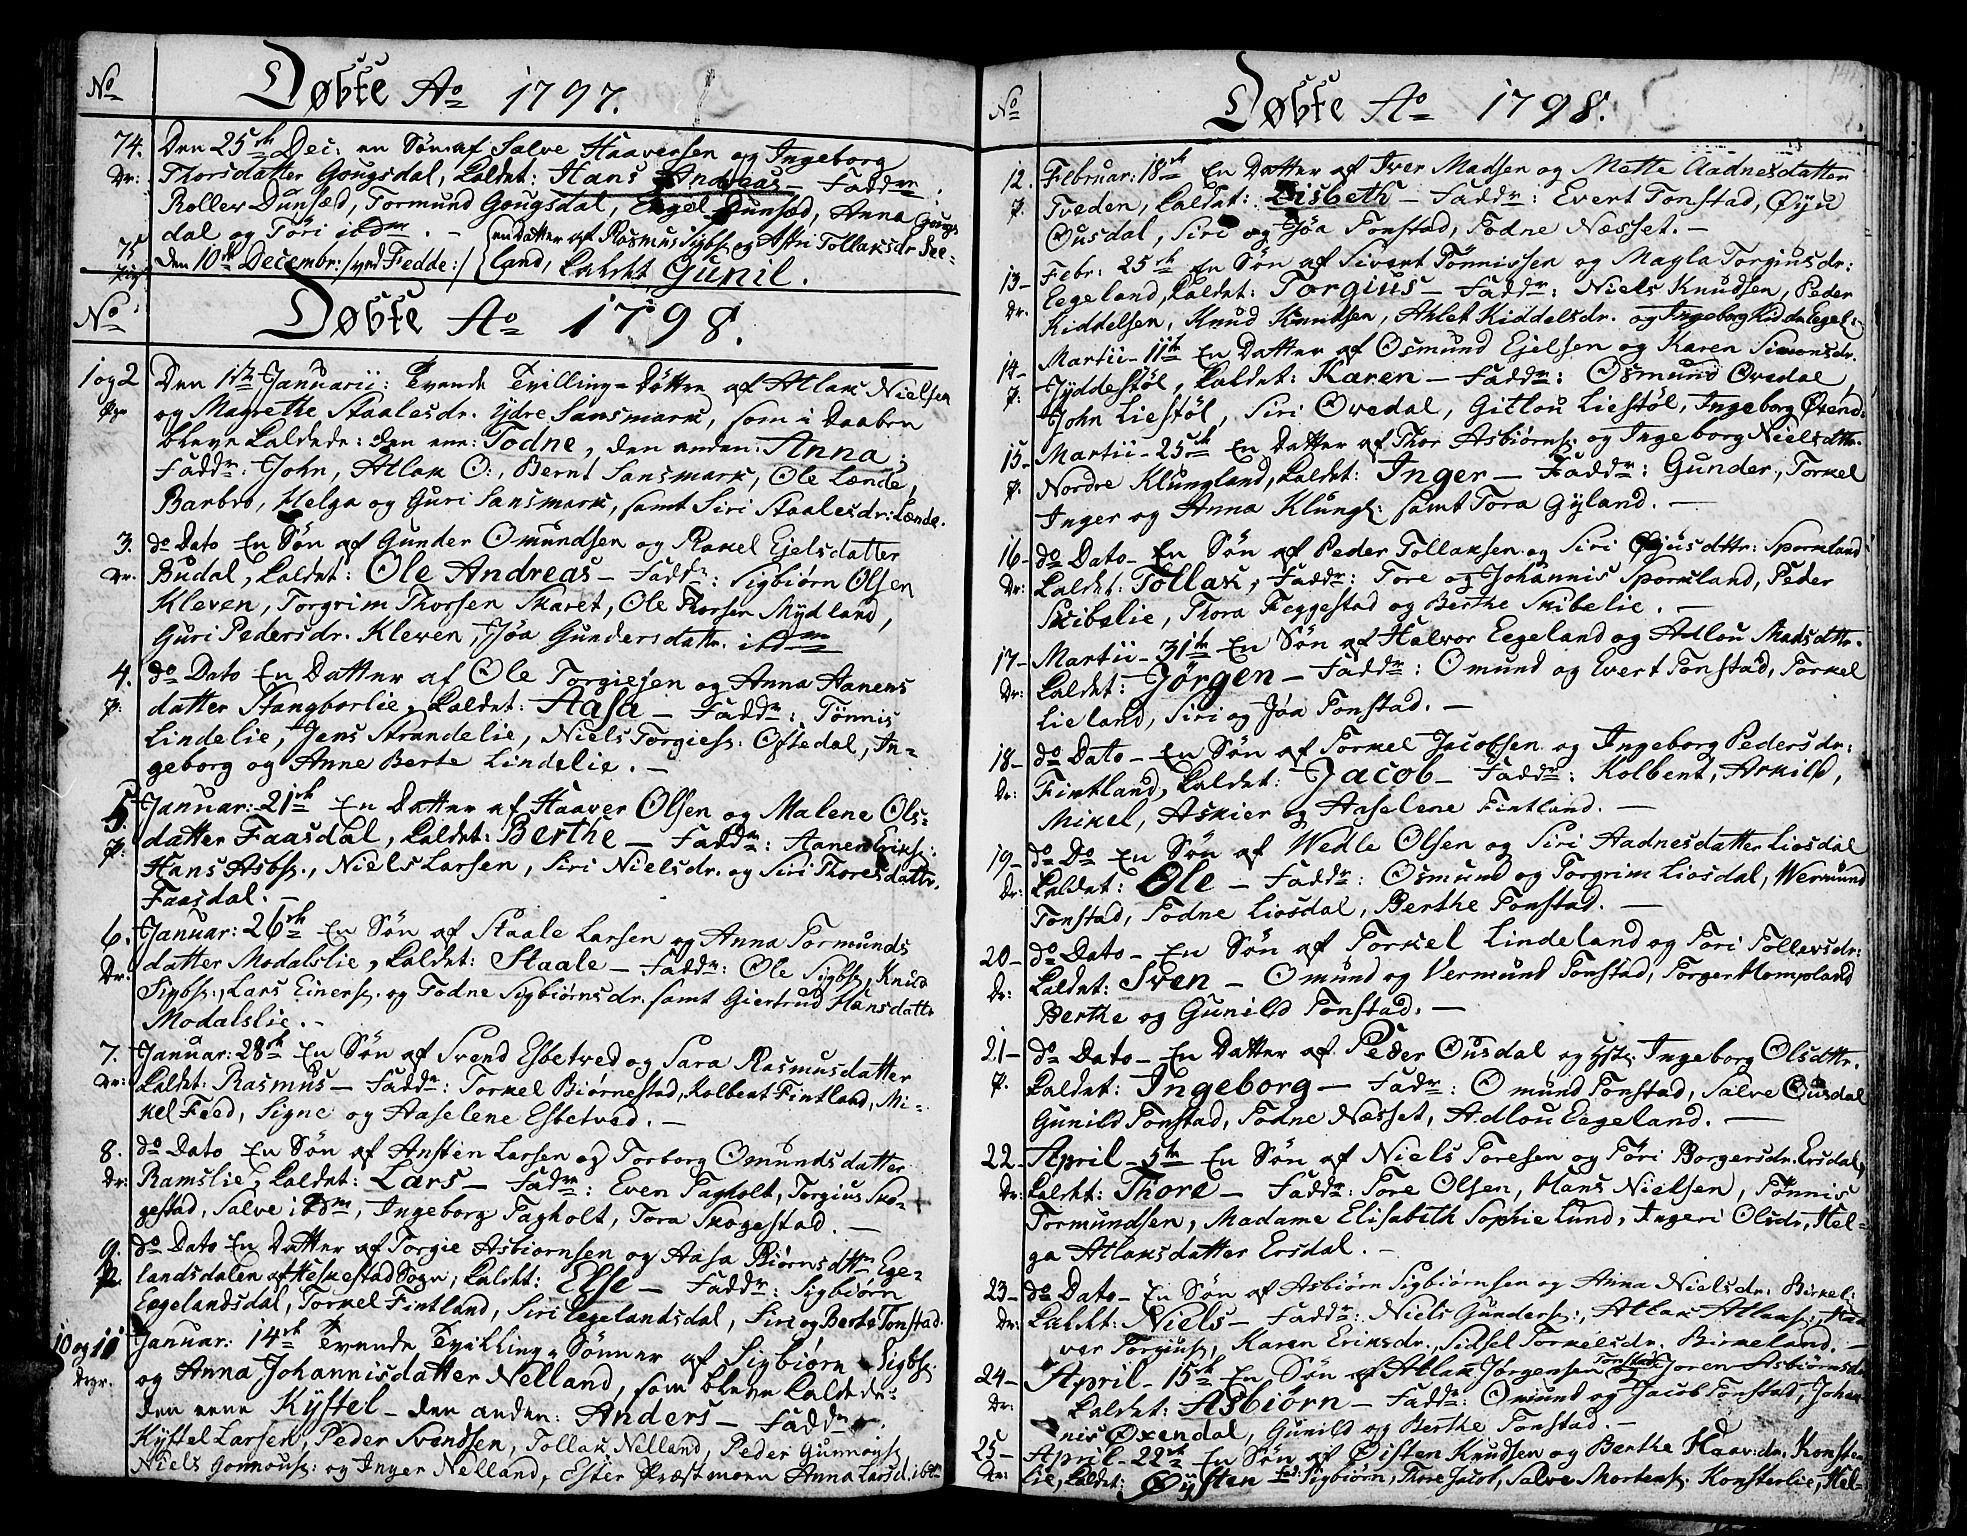 No Døbte Ao 1797.
74. Den 25de Dec: en Søn af Salve Haaversen og Ingeborg
Dr: Thorsdatter Gougsdal, kaldet: Hans Andreas – Faddr:
Rollev Dunsæd, Tormund Gougsdal, Engel Dunsæd, Anna Gougs
dal og Töri ibdm. –
75 Den 10de Decembr: /: ved Fedde :/ en Datter af Rasmus Sigbs: og Astri Tollaksdr See-
Pig land, kaldet Gunil.
No Døbte Ao 1798.
1 og 2 Den 1te Januarii: Tvende Tvilling-Døttre af Atlak Nielsen
og Magrethe Staalesdr. Ydre Sansmark, som i Daaben
bleve kaldede: den ene: Todne, den anden: Anna;
Faddr: John, Atlak O:, Bernt Sansmark, Ole Lænde,
Barbro, Helga og Guri Sansmark, samt Siri Staalesdr: Lænde.
3. do Dato En Søn af Gunder Omundsen og Rakel Ejelsdatter
Dr. Budal, kaldet: Ole Andreas – Faddr: Sigbiørn Olsen
Kleven, Torgrim Thorsen Skaret, Ole Thorsen Mydland,
Guri Pedersdr. Kleven, Jöa Gundersdattr. ibdm
4. do Dato En Datter af Ole Torgiesen og Anna Aanens
p. datter Stangborlie, kaldet: Aasa – Faddr: Tönnis
Lindelie, Jens Strandelie, Niels Torgies: Oftedal, In-
geborg og Anne Berte Lindelie. –
5. Januar: 21de En Datter af Haaver Olsen og Malene Ols-
p. datter Faasdal, kaldet: Berthe – Faddr: Aanen Eriks:
Hans Asbs:, Niels Larsen, Siri Nielsdr. og Siri Thoresdattr.
Faasdal. –
6. Januar: 26de En Søn af Staale Larsen og Anna Tormunds
Dr: datter Modalslie, kaldet: Staale – Faddr: Ole Sigbs:, Knud
Sigbs:, Lars Einers: og Todne Sigbiørnsdr. samt Giertrud Hansdattr
Modalslie. –
7. Januar: 28de En Søn af Svend Esbetved og Sara Rasmusdatter
Dr: kaldet: Rasmus – Faddr: Torkel Biørnestad, Kolbent Fintland, Mi-
kel Feed, Signe og Aaselene Esbetved. –
8. do Dato En Søn af Ansten Larsen og Torborg Omundsdatter
Dr: Ramslie, kaldet: Lars – Fadr: Even Tagholt, Torgius Sko-
gestad, Salve ibdm, Ingeborg Tagholt, Tora Skogestad. –
9. do Dato En Datter af Torgie Asbiørnsen og Aasa Biørnsdttr Ege-
p. landsdalen af Heskestad Sogn, kaldet: Else – Faddr: Sigbiørn
Eegelandsdal, Torkel Fintland, Siri Eegelandsdal, Siri og Berte Tonstad.
10 og 11 Januar: 14de Tvende Tvilling-Sønner af Sigbiørn Sigbs:
Drgr. og Anna Johannisdatter Nelland, som bleve kaldede:
den eene Kystel – den anden: Anders – Faddr.
Kystel Larsen, Peder Svendsen, Tollak Nelland, Peder Gunnoys:
Niels Gonnous: og Inger Nelland, Ester Præstmoen Anna Larsd. ibdm
No Døbte Ao 1798.
12. Februar: 18de En Datter af Iver Madsen og Mette Aadnesdatter
p. Tveden, kaldet: Lisbeth – Faddr: Evert Tonstad, Øyu
Ousdal, Siri og Jöa Tonstad, Todne Næsset. –
13 – Febr: 25de En Søn af Sivert Tönnissen og Magla Torgiusdr:
Dr. Eegeland, kaldet: Torgius – Faddr: Niels Knudsen, Peder
Kiddelsen, Knud Knudsen, Ahlet Kiddelsdr. og Ingeborg Kiddr Eegel:
14 – Martii – 11te En Datter af Osmund Ejelsen og Karen Simonsdr.
p. Jyddestøl, kaldet: Karen – Faddr: Osmund Ovedal,
John Liestøl, Siri Ovedal, Gitlou Liestøl, Ingeborg Øvend:
15 – Martii – 25de En Datter af Thor Asbiørns: og Ingeborg Nielsdttr.
p. Nordre Klungland, kaldet: Inger – Faddr: Gunder, Torkel
Inger og Anna Klungl: samt Tora Gyland. –
16 – do Dato – En Søn af Peder Tollaksen og Siri Øyusdttr: Sporkland
Dr: kaldet: Tollak, Faddr: Tore og Johannis Sporkland, Peder
Skibelie, Thora Feggestad og Berthe Skibelie. –
17 – Martii – 31te En Søn af Halvor Eegeland og Adlou Madsdttr.
Dr: kaldet: Jörgen – Faddr: Omund og Evert Tonstad, Torkel
Lieland, Siri og Jöa Tonstad. –
18 – do Dato – En Søn af Torkel Jacobsen og Ingeborg Pedersdr:
Dr: Fintland, kaldet: Jacob – Faddr: Kolbent, Askild,
Mikel, Askier og Aaselene Fintland. –
19 – do Do En Søn af Wedle Olsen og Siri Aadnesdatter Liosdal
Dr: kaldet: Ole – Faddr: Osmund og Torgrim Liosdal, Wermund
Tonstad, Todne Liosdal, Berthe Tonstad. –
20 – do Dato – En Søn af Torkel Lindeland og Tori Tollevsdr:
Dr: kaldet: Sven – Omund og Vermund Tonstad, Torger Hompland
Berthe og Gunild Tonstad. –
21 – do Dato – En Datter af Peder Ousdal og Hst: Ingeborg Olsdttr.
p. kaldet: Ingeborg – Fadr: Omund Tonstad, Salve Ousdal
Gunild Tonstad, Todne Næsset, Adlou Eegeland. –
22 – April – 5te En Søn af Niels Toresen og Töri Borgersdr. Ersdal,
Dr: kaldet: Thore – Faddr: Tore Olsen, Hans Nielsen, Tönnis
Tormundsen, Madame Elisabeth Sophie Lund, Ingeri Olsdr, Hel-
ga Atlaksdatter Ersdal. –
23 – do Dato – En Søn af Asbiörn Sigbiørnsen og Anna Nielsdr: Birkel:
Dr: kaldet: Niels – Faddr: Niels Gunders:, Atlak Atlaks:, Haa
ver Torgius:, Karen Eriksdr., Sidsel Torkelsdr. Birkeland. –
24 – April – 15de En Søn af Atlak Jørgensen Tonstad og Joren Asbiørnsdr
Dr: kaldet: Asbiörn – Faddr: Omund og Jacob Tonstad, Johan
nis Øxendal, Gunild og Berthe Tonstad. –
25 – April – 22de En Søn af Øisten Knudsen og Berthe Haav:dr. Konster
Dr: lie, kaldet: Øysten Fd: Sigbiörn, Thore Jacob, Salve Mortens: Konsterlie, Hel-